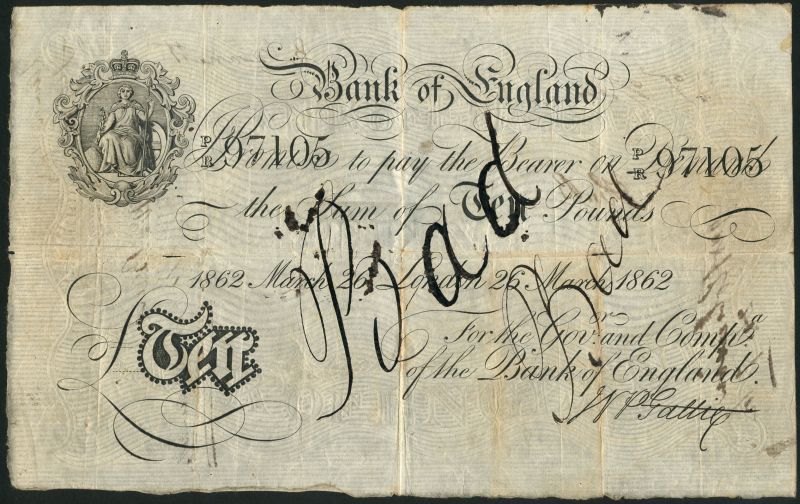 Bank of England
P/R 97105 P/R 97105
Promise to pay the Bearer on Demand
the Sum of Ten Pounds
1862 March 26 London 26 March 1862
Bad
Bad
For the Gov.r and Comp.a
of the Bank of England.
£Ten